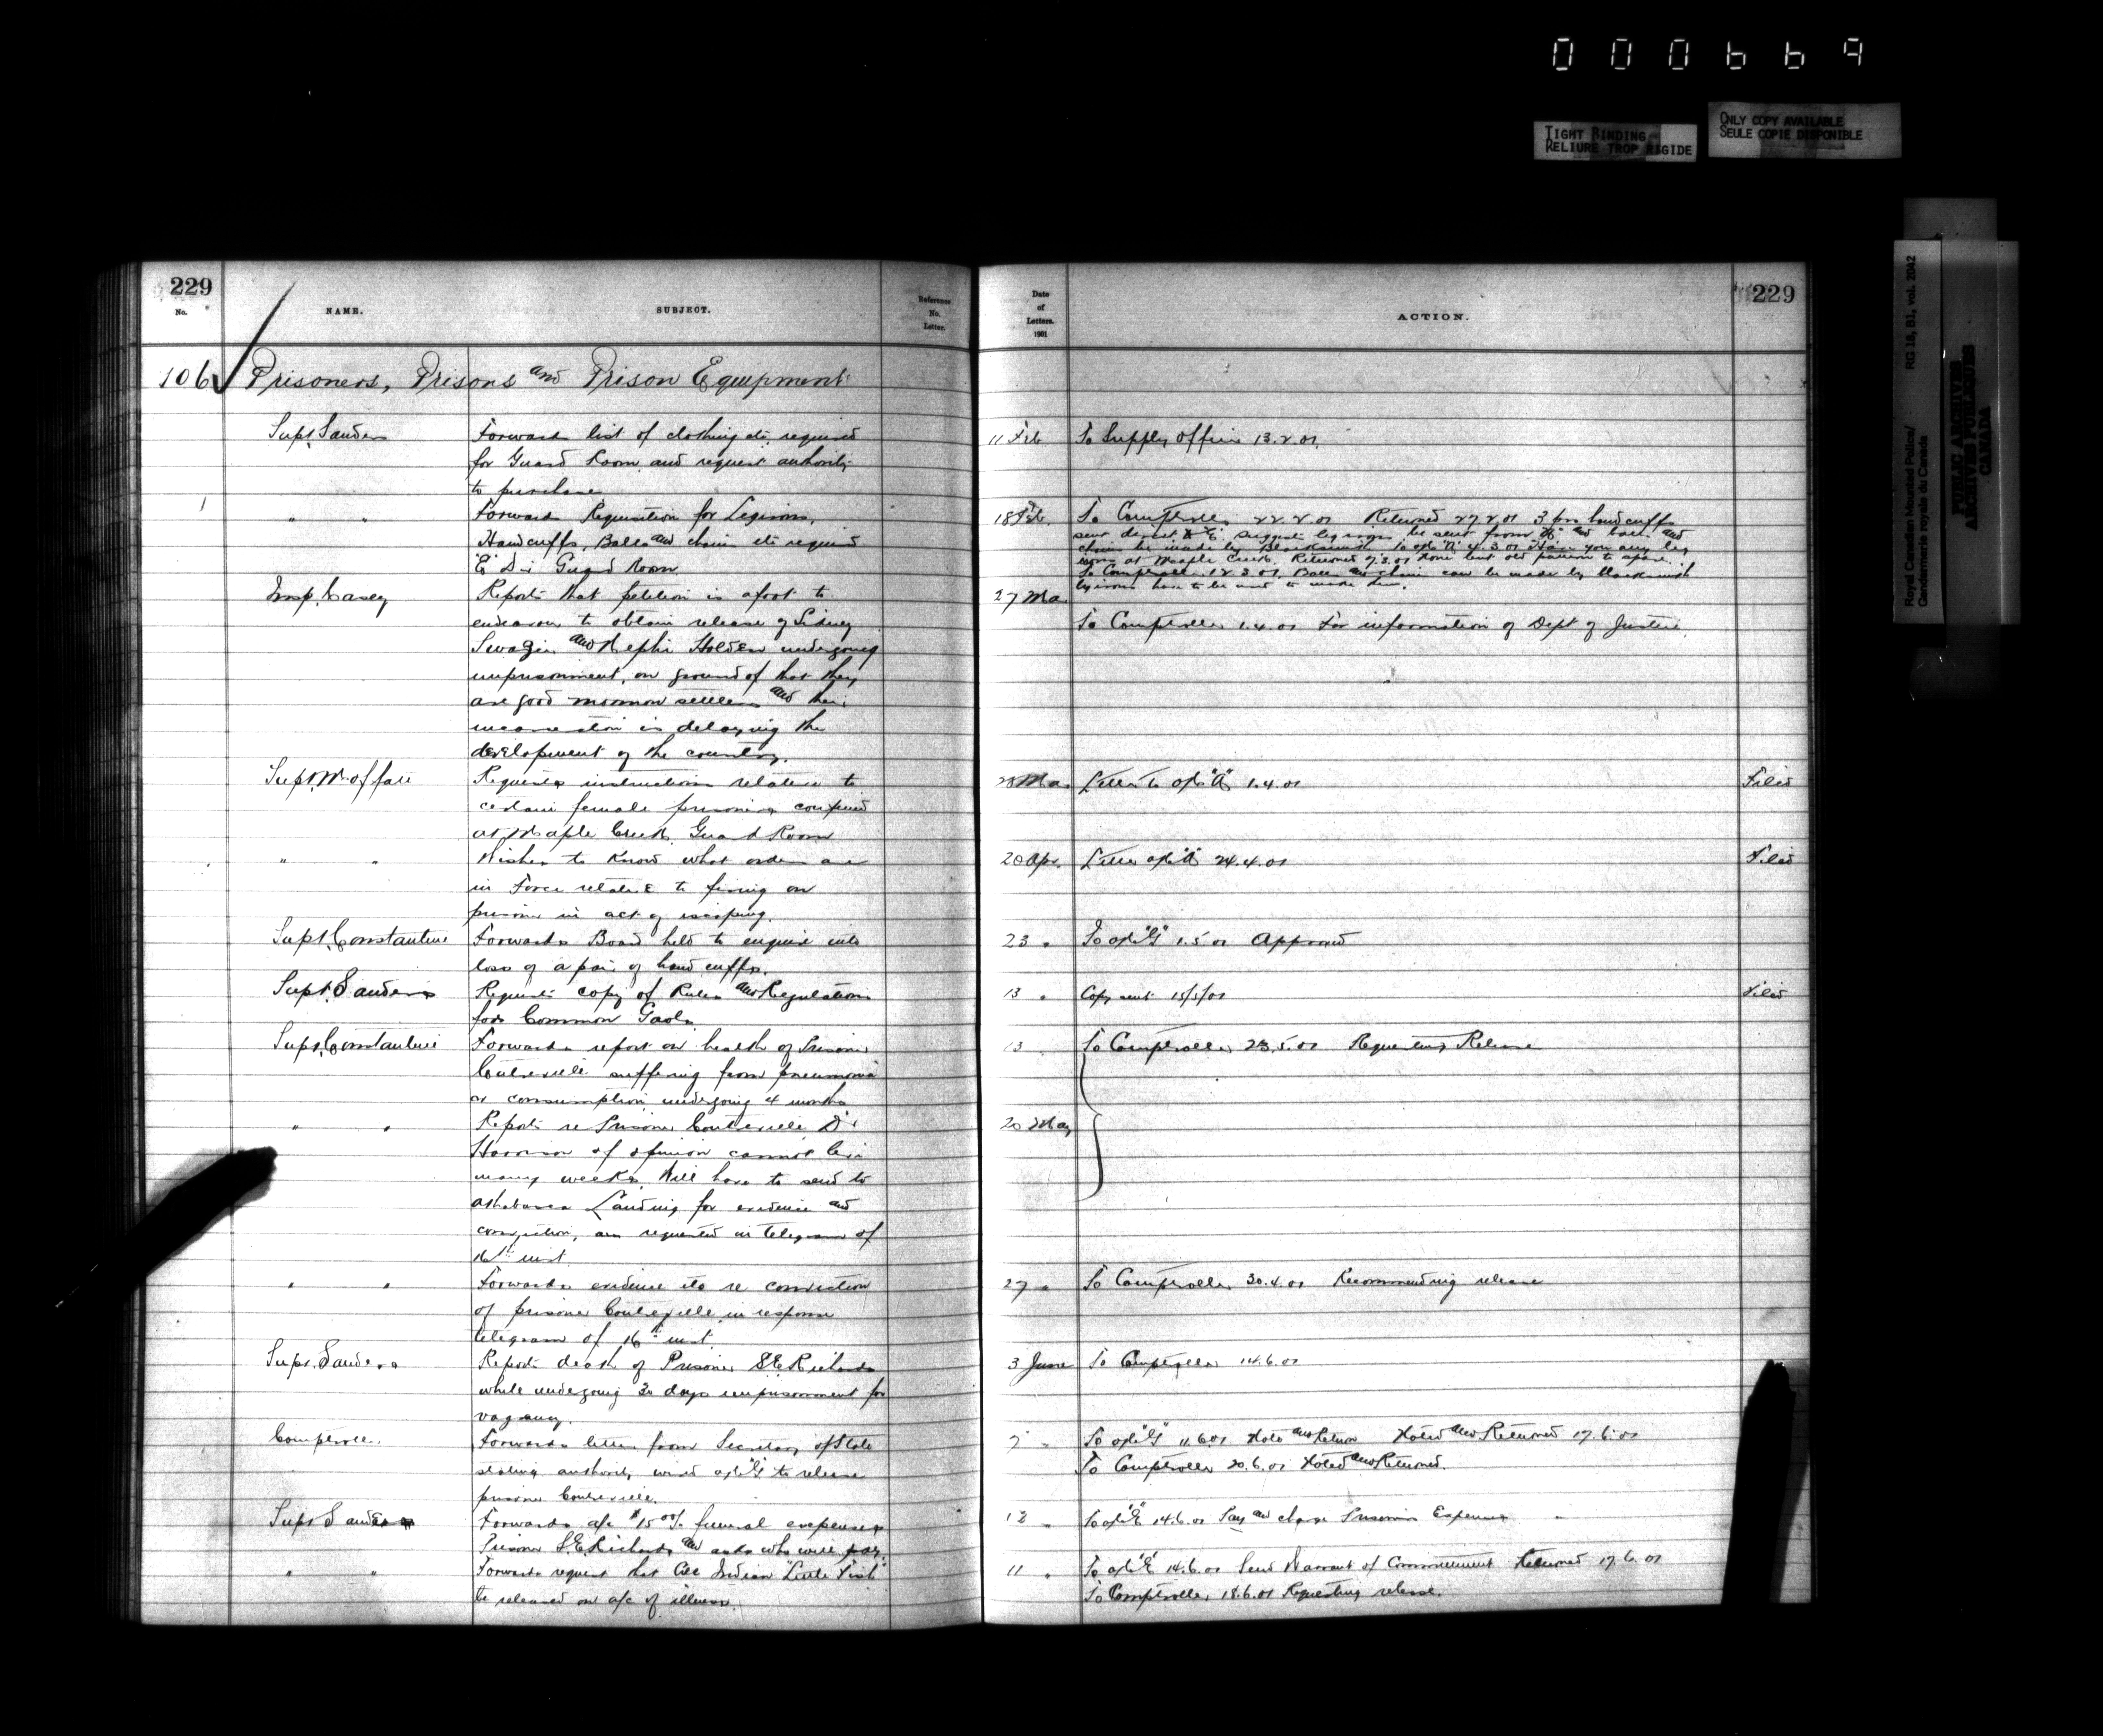 000669
TIGHT BINDING
RELIURE TROP RIGIDE
ONLY COPY AVAILABLE
SEULE COPIE DISPONIBLE
Royal Canadian Mounted Police/ RG 18, B1, vol. 2042
Gendarmerie royale du Canada
PUBLIC ARCHIVES
ARCHIVES PUBLIQUES
CANADA
229
No.
NAME.
SUBJECT.
Reference
No.
Letter.
106 Prisoners, Prisons and Prison Equipment
Supt. Sanders Forwards list of clothing etc. required
for Guard Room and request authority
to purchase
" " Forwards Requisition for Legirons,
Handcuffs, Balls and chains etc required
"E" Di Guard Room
Insp. Casey Reports that petition is afoot to
endeavour to obtain release of Sidney
Swagin and Nephi Holden undergoing
imprisonment, on ground of that they
are good mormon settlers and their
incarceration is delaying the
development of the country.
Supt. Moffatt Requests instructions relative to
certain female prisoners confined
at Maple Creek Guard Room
" " Wishes to know what orders are
in Force relative to firing on
prisoner in act of escaping.
Supt. Constantine Forwards Board held to enquire into
loss of a pair of hand cuffs.
Supt. Sanders Requests copy of Rules and Regulations
for Common Gaols
Supt. Constantine Forwards report on health of Prisoner
suffering from pneumonia
or consumption undergoing 4 months
" " Reports re Prisoner Dr
Harrison of opinion cannot live
many weeks. Will have to send to
Athabasca Landing for evidence and
conviction, as requested in telegram of
16th inst.
" " Forwards evidence etc re conviction
of prisoner in response
telegram of 16th inst.
Supt. Sanders Reports death of Prisoner S.E. Richards
while undergoing 30 days imprisonment for
vagancy.
Comptroller Forwards letter from Secretary of State
stating authority wired "G" to release
prisoner
Supt Sanders Forwards a/c $15 00/ funeral expenses
Prisoner S.E. Richards and asks who will pay.
" " Forwards request that Cree Indian "Little "
be released on a/c of illness.
Date
of
Letters.
1901
ACTION.
229
11 Feb To Supply Officer 13.2.01.
18 Feb. To Comptroller 22.2.01 Returned 27.2.01 3 prs handcuffs
sent direct to "E". Suggest leg irons be sent from "A" and balls and
chains be made by Blacksmith. To "A" 4.3.01 Have you any leg
irons at Maple Creek. Returned 7.3.01 None but old pattern to spare.
To Comptroller 12.3.01. Balls and chain can be made by blacksmith
leg irons have to be used to made
27 Mar.
To Comptroller 1.4.01 For information of Dept of Justice.
28 Mar. Letter to "A" 1.4.01 Filed
20 Apr. Letter "A" 24.4.01 Filed
23 " To "G" 1.5.01 Approved
13 " Copy sent 15/5/01 Filed
13 " To Comptroller 23.5.01 Requesting Release
20 May
27 " To Comptroller 30.4.01 Recommending release
3 June To Comptroller 14.6.01
7 " To "G" 11.6.01 Note and Return Noted and Returned 17.6.01
To Comptroller 20.6.01 Noted and Returned.
12 " To "E" 14.6.01 Pay and charge Prisoners Expenses
11 " To "E" 14.6.01 Send Warrant of Commitment Returned 17.6.01
To Comptroller, 18.6.01 Requesting release.